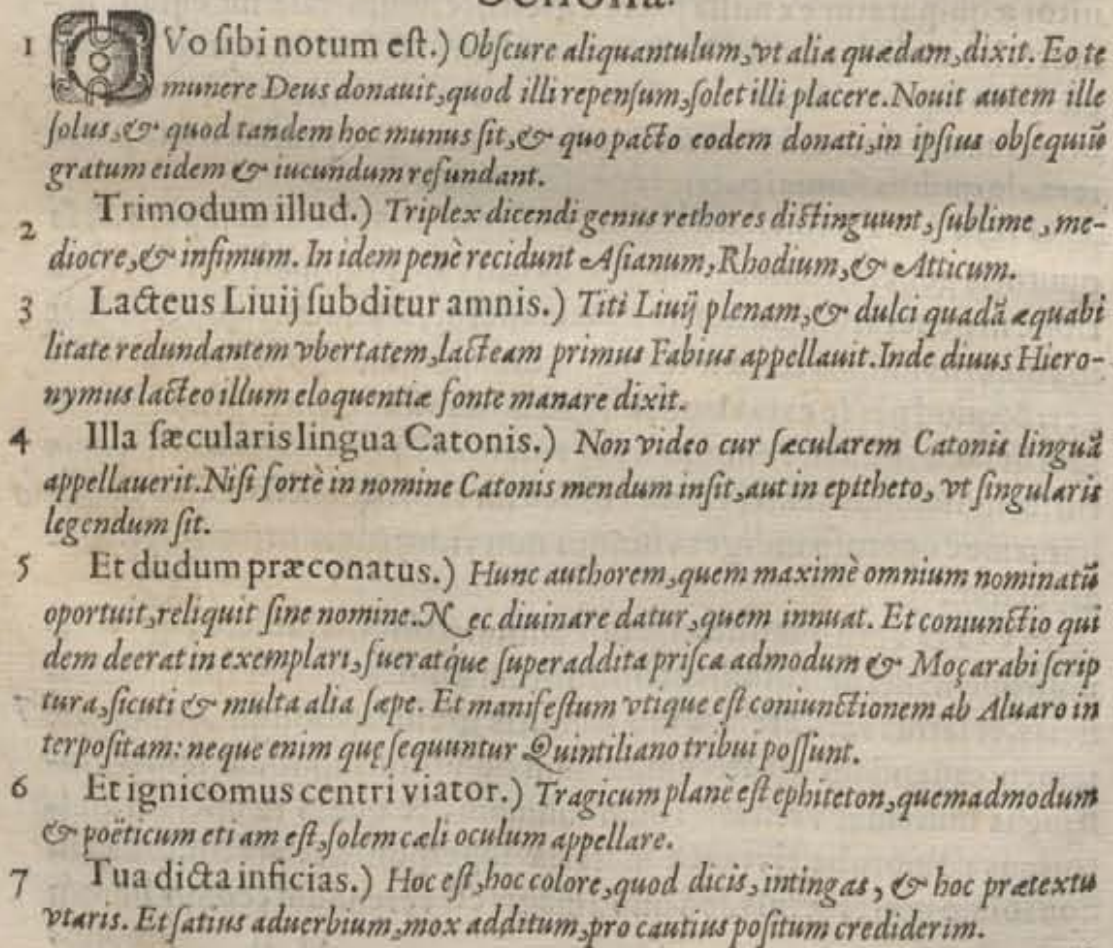 Scholia.
1 QVo sibi notum est.) Obscure aliquantulum, vt alia quædam, dixit. Eo te
munere Deus donauit, quod illi repensum, solet illi placere. Nouit autem ille
solus, & quod tandem hoc munus sit, & quo pacto eodem donati, in ipsius obsequiū
gratum eidem & iucundum refundant.
2 Trimodum illud.) Triplex dicendi genus rethores distinguunt, sublime, me-
diocre, & infimum. In idem penè recidunt Asianum, Rhodium, & Atticum.
3 Lacteus Liuij subditur amnis.) Titi Liuij plenam, & dulci quadā æquabi
litate redundantem vbertatem, lacteam primus Fabius appellauit. Inde diuus Hiero-
nymus lacteo illum eloquentiæ fonte manare dixit.
4 Illa sæcularis lingua Catonis.) Non video cur sæcularem Catonis linguā
appellauerit. Nisi fortè in nomine Catonis mendum insit, aut in epitheto, vt singularis
legendum sit.
5 Et dudum præconatus.) Hunc authorem, quem maximè omnium nominatū
oportuit, reliquit sine nomine. Nec diuinare datur, quem innuat. Et coniunctio qui
dem deerat in exemplari, fueratq́ue superaddita prisca admodum & Moçarabi scrip
tura, sicuti & multa alia sæpe. Et manifestum vtique est coniunctionem ab Aluaro in
terpositam: neque enim quę sequuntur Quintiliano tribui possunt.
6 Et ignicomus centri viator.) Tragicum planè est ephiteton, quemadmodum
& poëticum eti am est, solem cæli oculum appellare.
7 Tua dicta inficias.) Hoc est, hoc colore, quod dicis, intingas, & hoc prætextu
vtaris. Et satius aduerbium, mox additum, pro cautius positum crediderim.